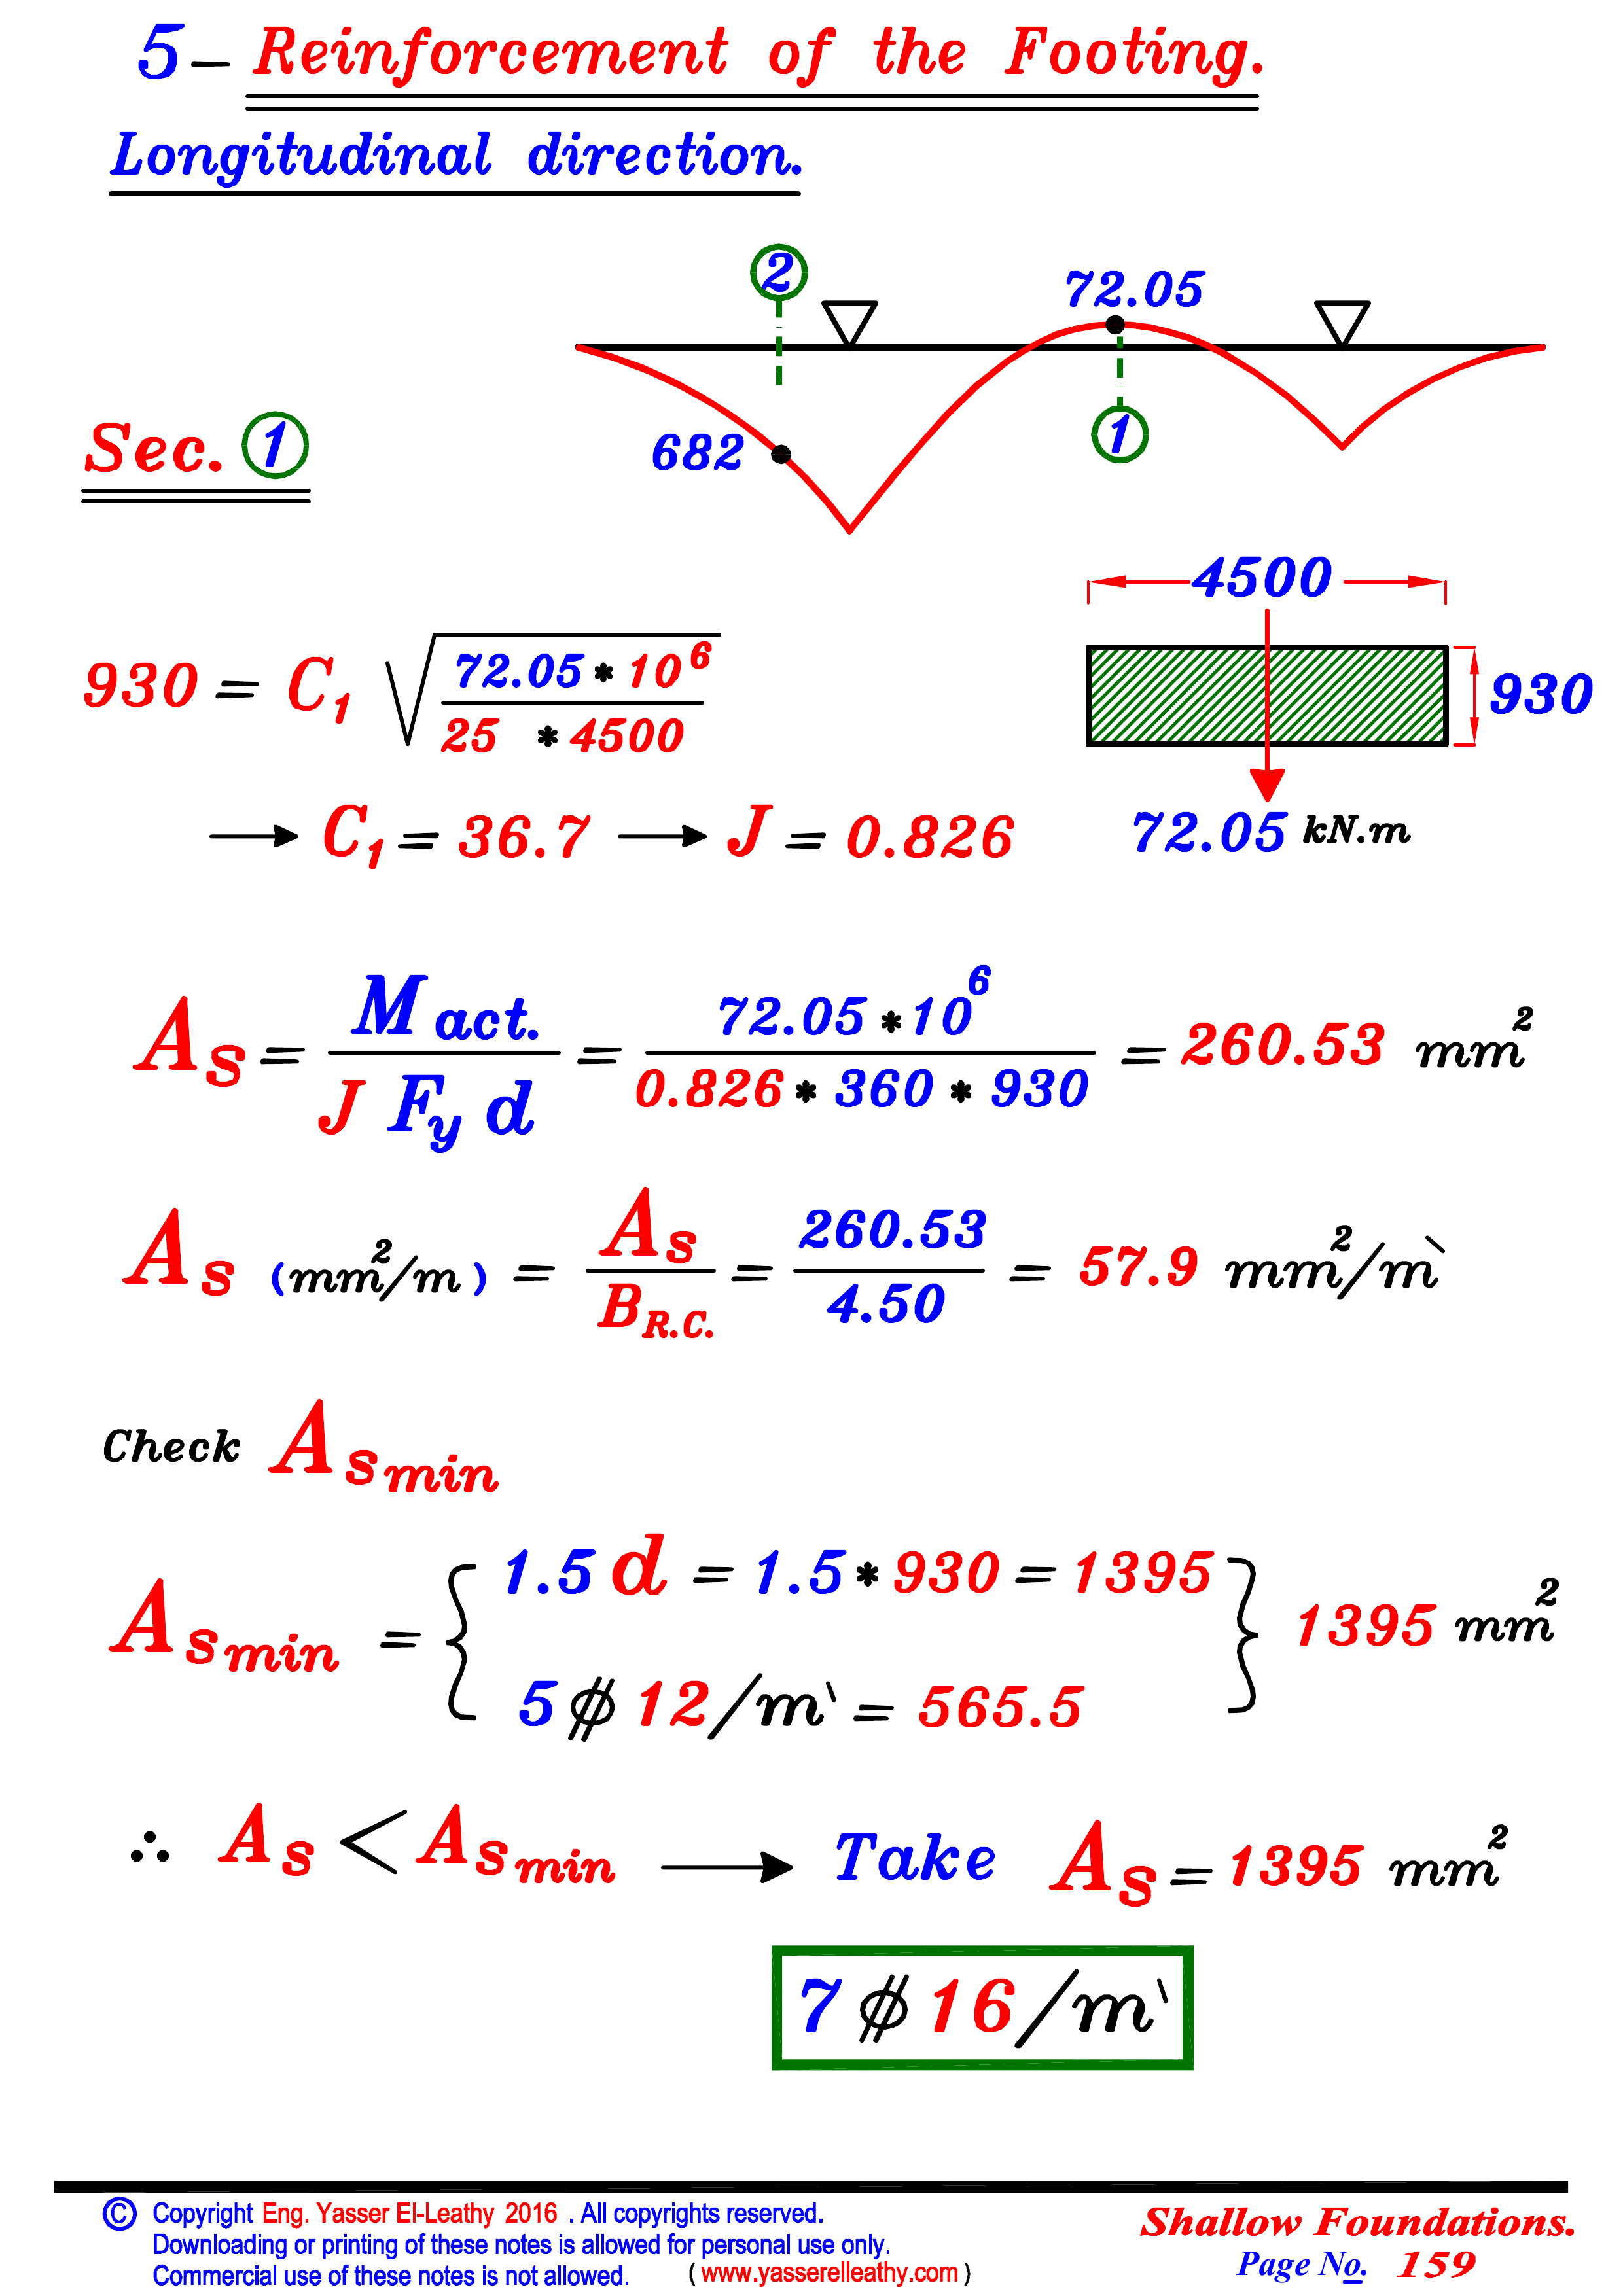 5- Reinforcement of the Footing.
Longitudinal direction.
2
72.05
682
1
Sec. 1
4500
930
72.05 kN.m
930 = C₁ √(72.05 * 10⁶ / 25 * 4500)
→ C₁ = 36.7 → J = 0.826
As = M act. / J Fy d = 72.05 * 10⁶ / 0.826 * 360 * 930 = 260.53 mm²
As (mm²/m) = As / B R.C. = 260.53 / 4.50 = 57.9 mm²/m`
Check As min
As min = { 1.5 d = 1.5 * 930 = 1395
5 ϕ 12/m` = 565.5 } 1395 mm²
∴ As < As min → Take As = 1395 mm²
7 ϕ 16/m`
© Copyright Eng. Yasser El-Leathy 2016 . All copyrights reserved.
Downloading or printing of these notes is allowed for personal use only.
Commercial use of these notes is not allowed. ( www.yasserelleathy.com )
Shallow Foundations.
Page No. 159